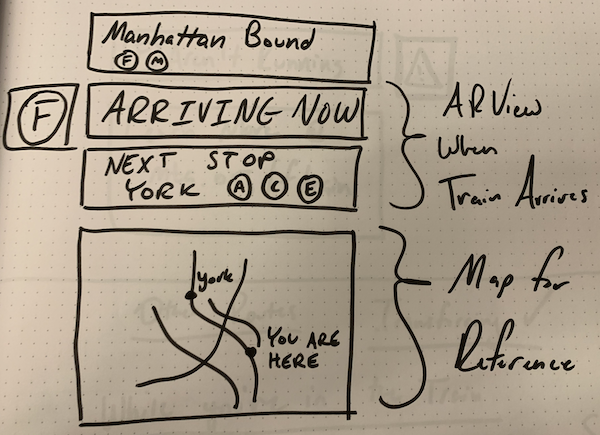 Manhattan Bound
F M
F
ARRIVING NOW
NEXT STOP
YORK A C E
AR View
When
Train Arrives
york
YOU ARE
HERE
Map for
Reference